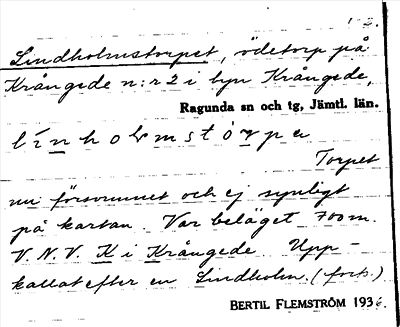 1-2.
Lindholmstorpet, ödetorp på
Krångede n:r 2 i byn Krångede,
Ragunda sn och tg, Jämtl. län.
línholmstòrpe
Torpet
nu försvunnet och ej synligt
på kartan. Var beläget 700 m.
V.N.V. K i Krångede. Upp-
kallat efter en Lindholm. (forts.)
BERTIL FLEMSTRÖM 1936.